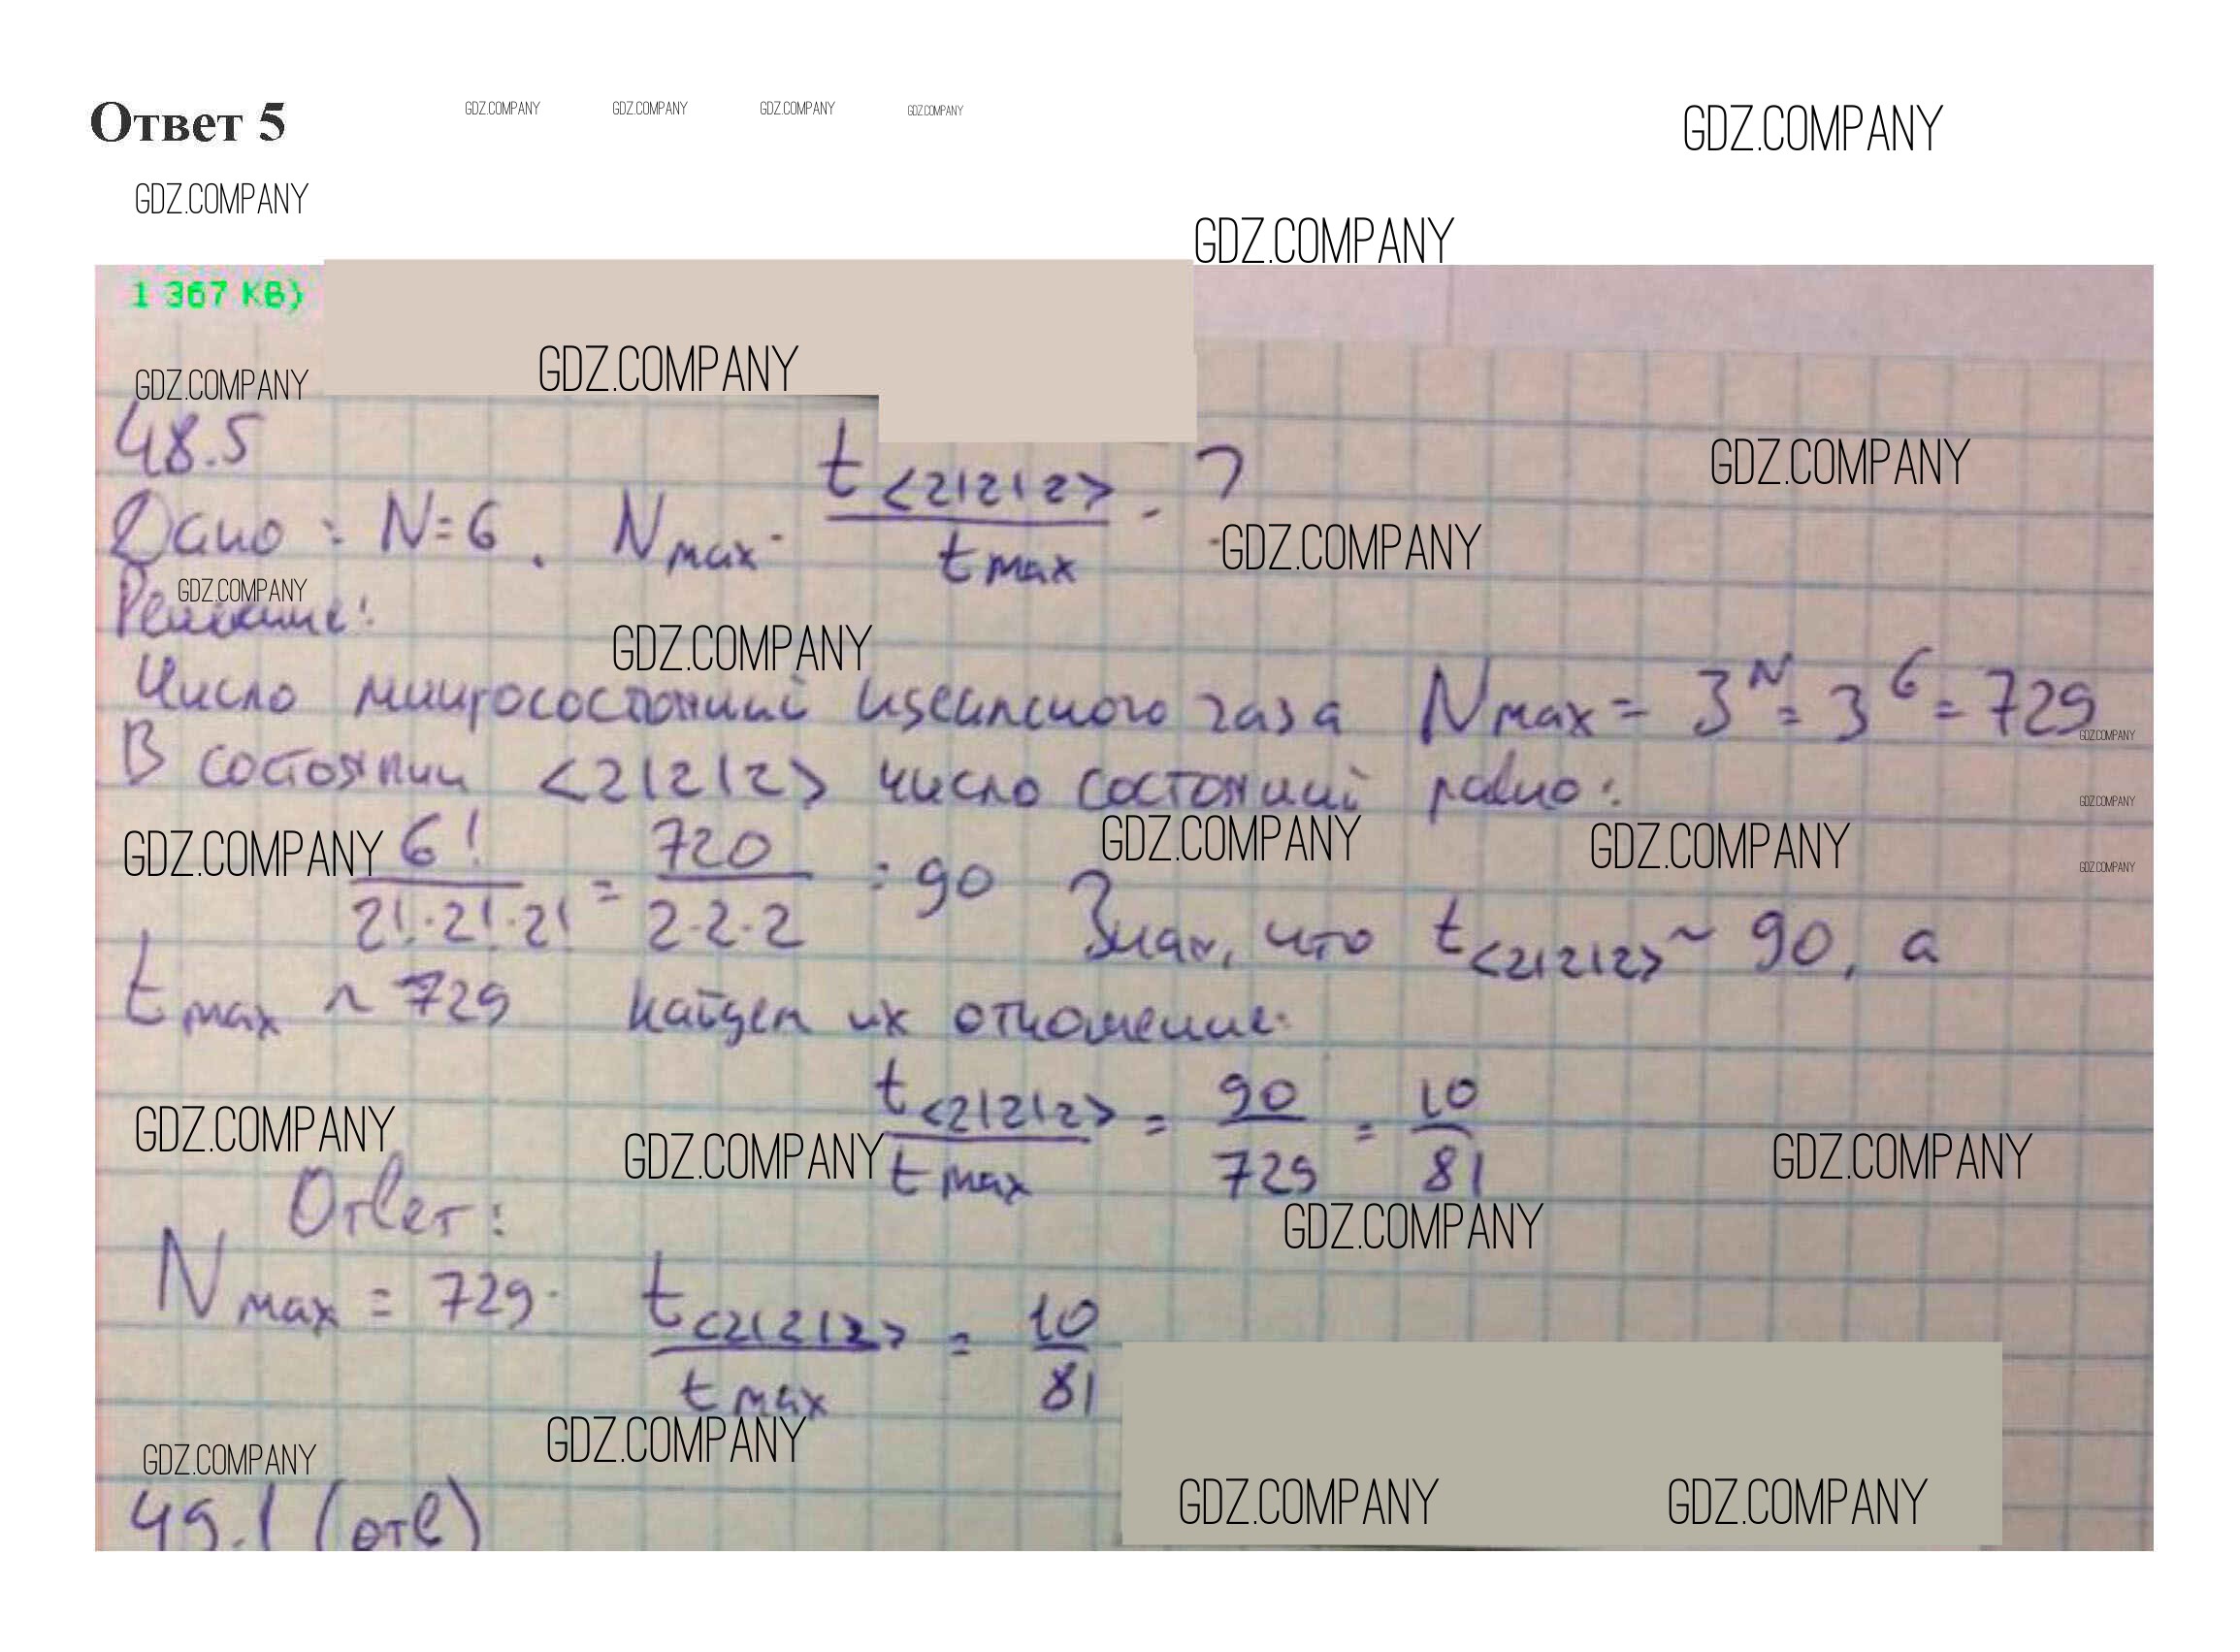 Ответ 5
GDZ.COMPANY GDZ.COMPANY GDZ.COMPANY GDZ.COMPANY
GDZ.COMPANY
GDZ.COMPANY
GDZ.COMPANY
1 367 KB)
GDZ.COMPANY
GDZ.COMPANY
48.5
GDZ.COMPANY
Дано: N=6. Nmax. t<2|2|2> / tmax - ?
GDZ.COMPANY
GDZ.COMPANY
Решение:
GDZ.COMPANY
Число микросостояний идеального газа Nmax = 3^N = 3^6 = 729
GDZ.COMPANY
В состоянии <2|2|2> число состояний равно:
GDZ.COMPANY
GDZ.COMPANY GDZ.COMPANY GDZ.COMPANY
GDZ.COMPANY
6! / 2!·2!·2! = 720 / 2·2·2 = 90 Зная, что t<2|2|2> ~ 90, а
tmax ~ 729 найдем их отношение:
t<2|2|2> / tmax = 90 / 729 = 10 / 81
GDZ.COMPANY GDZ.COMPANY GDZ.COMPANY
GDZ.COMPANY
Ответ:
Nmax = 729. t<2|2|2> / tmax = 10 / 81
GDZ.COMPANY GDZ.COMPANY
GDZ.COMPANY GDZ.COMPANY
49.1 (отв)